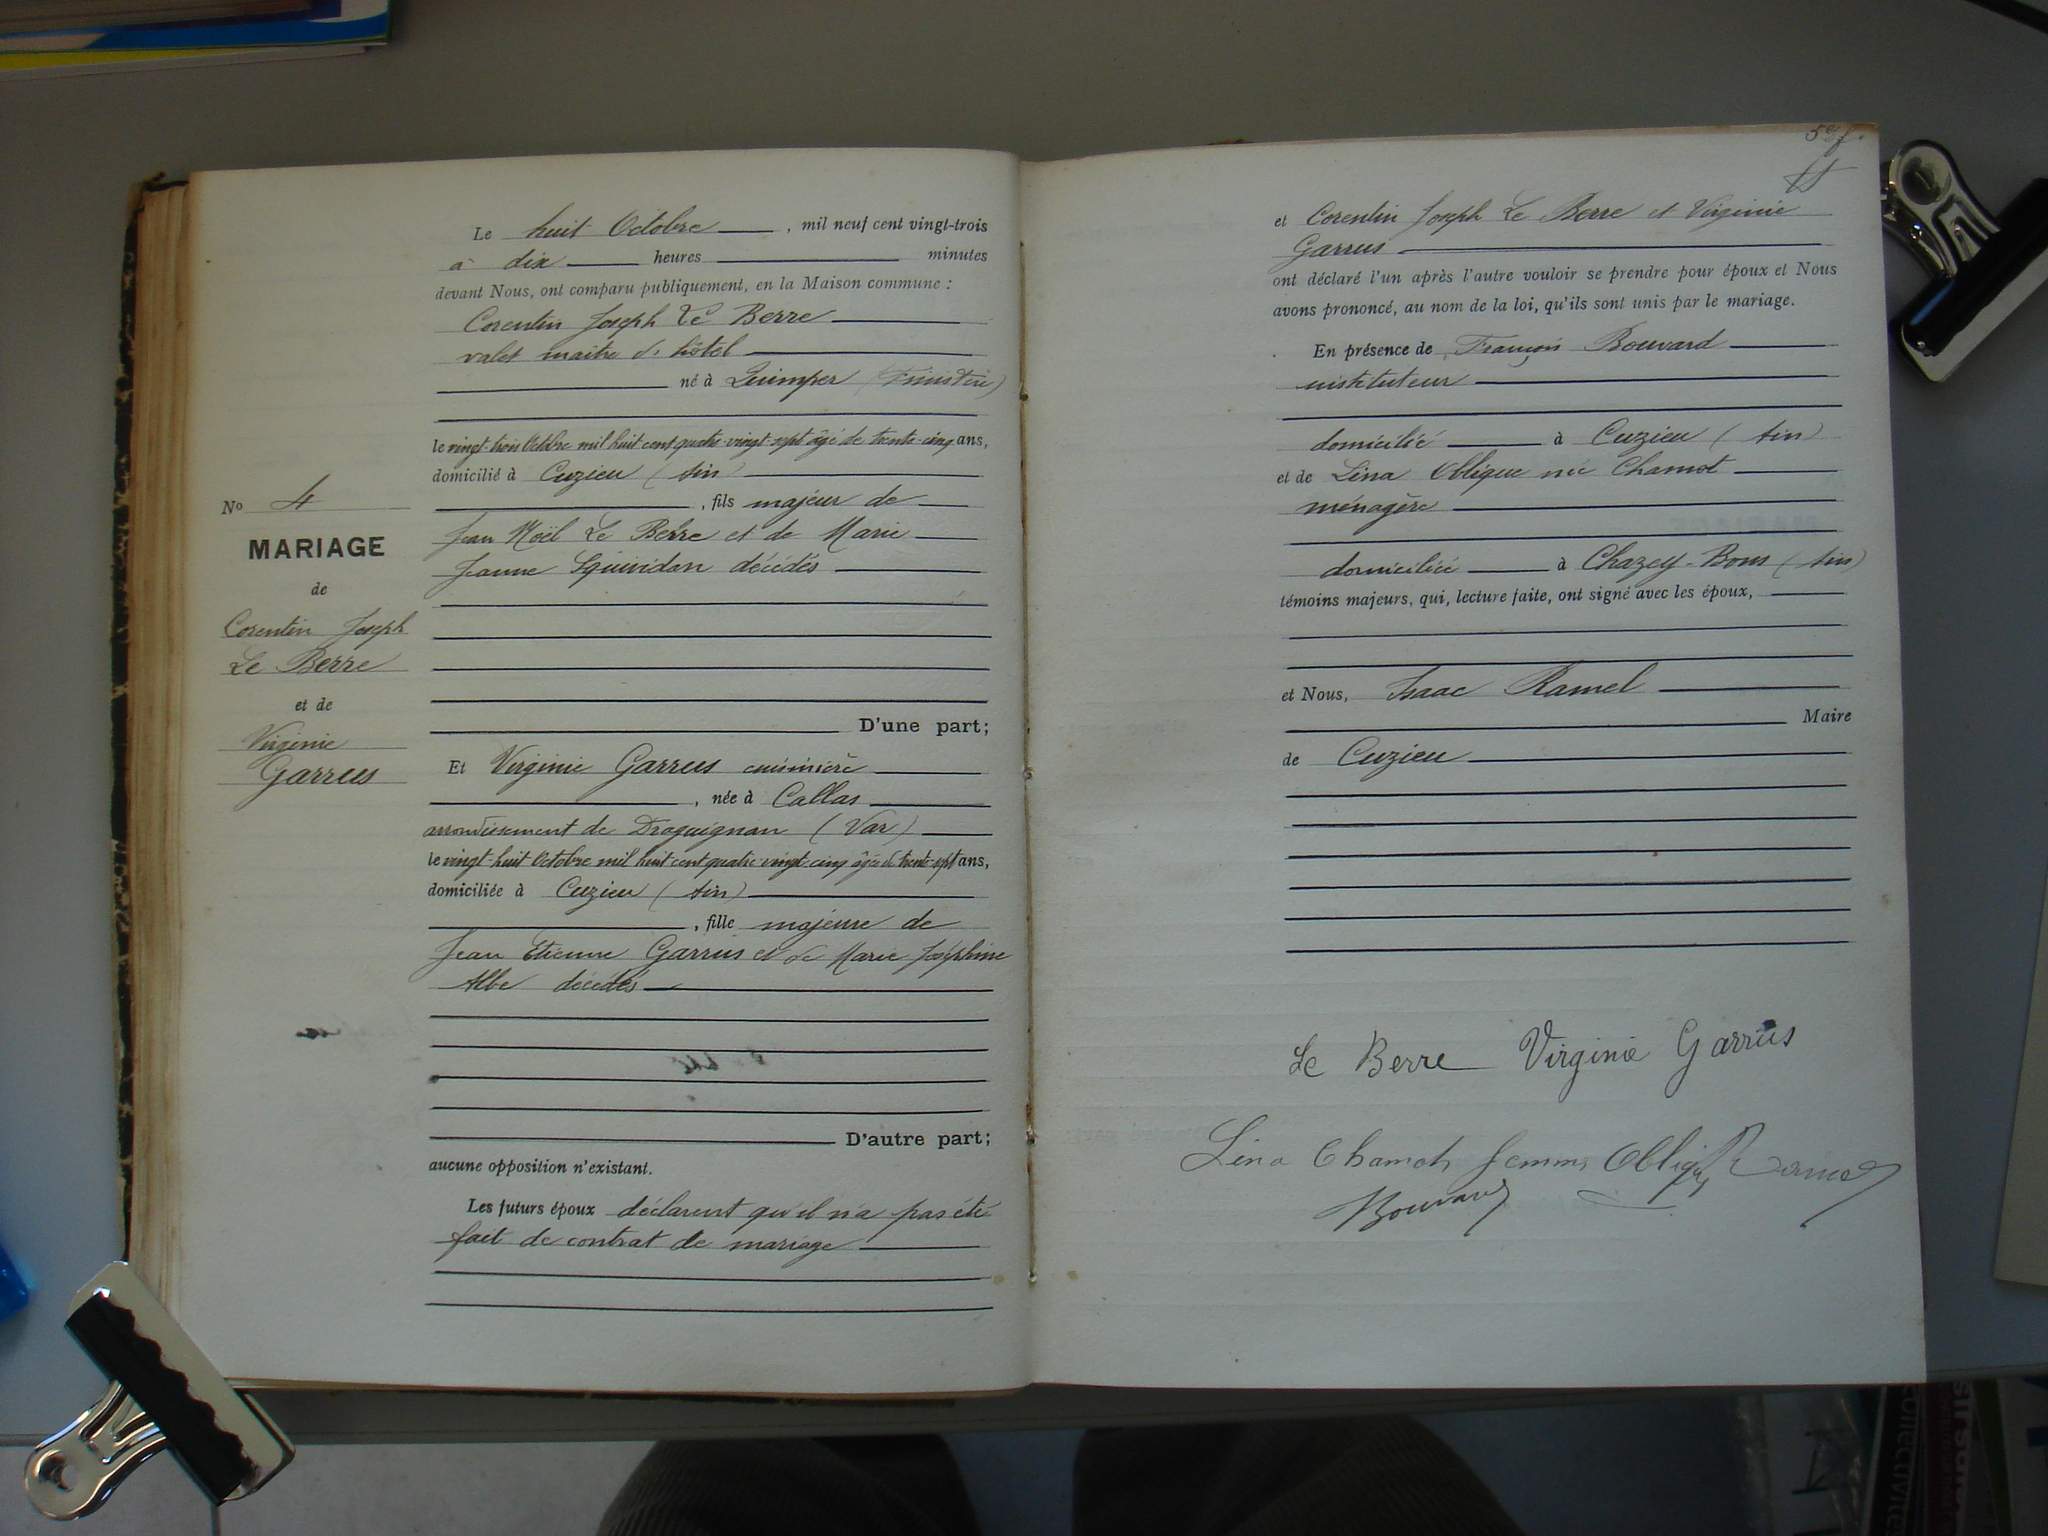 Le huit Octobre, mil neuf cent vingt-trois
à dix heures minutes
devant Nous, ont comparu publiquement, en la Maison commune :
Corentin Joseph Le Berre
valet maître d'hôtel
né à Quimper (Finistère)
le vingt-trois Octobre mil huit cent quatre-vingt-sept âgé de trente-cinq ans,
domicilié à Cuzieu (Ain)
, fils majeur de
Jean Noël Le Berre et de Marie
Jeanne décédés
D'une part;
Et Virginie Garrus cuisinière
, née à Callas
arrondissement de Draguignan (Var)
le vingt-huit Octobre mil huit cent quatre-vingt-cinq âgée de trente-sept ans,
domiciliée à Cuzieu (Ain)
, fille majeure de
Jean Etienne Garrus et de Marie Joséphine
Albe décédés
D'autre part;
aucune opposition n'existant.
Les futurs époux déclarent qu'il n'a pas été
fait de contrat de mariage
No 4
MARIAGE
de
Corentin Joseph
Le Berre
et de
Virginie
Garrus
et Corentin Joseph Le Berre et Virginie
Garrus
ont déclaré l'un après l'autre vouloir se prendre pour époux et Nous
avons prononcé, au nom de la loi, qu'ils sont unis par le mariage.
En présence de François Bouvard
instituteur
domicilié à Cuzieu (Ain)
et de Lina Oblique née Chamot
ménagère
domiciliée à Chazey-Bons (Ain)
témoins majeurs, qui, lecture faite, ont signé avec les époux,
et Nous, Isaac Ramel
Maire
de Cuzieu
Le Berre Virginie Garrus
Lina Chamot femme Oblique Ramel
Bouvard